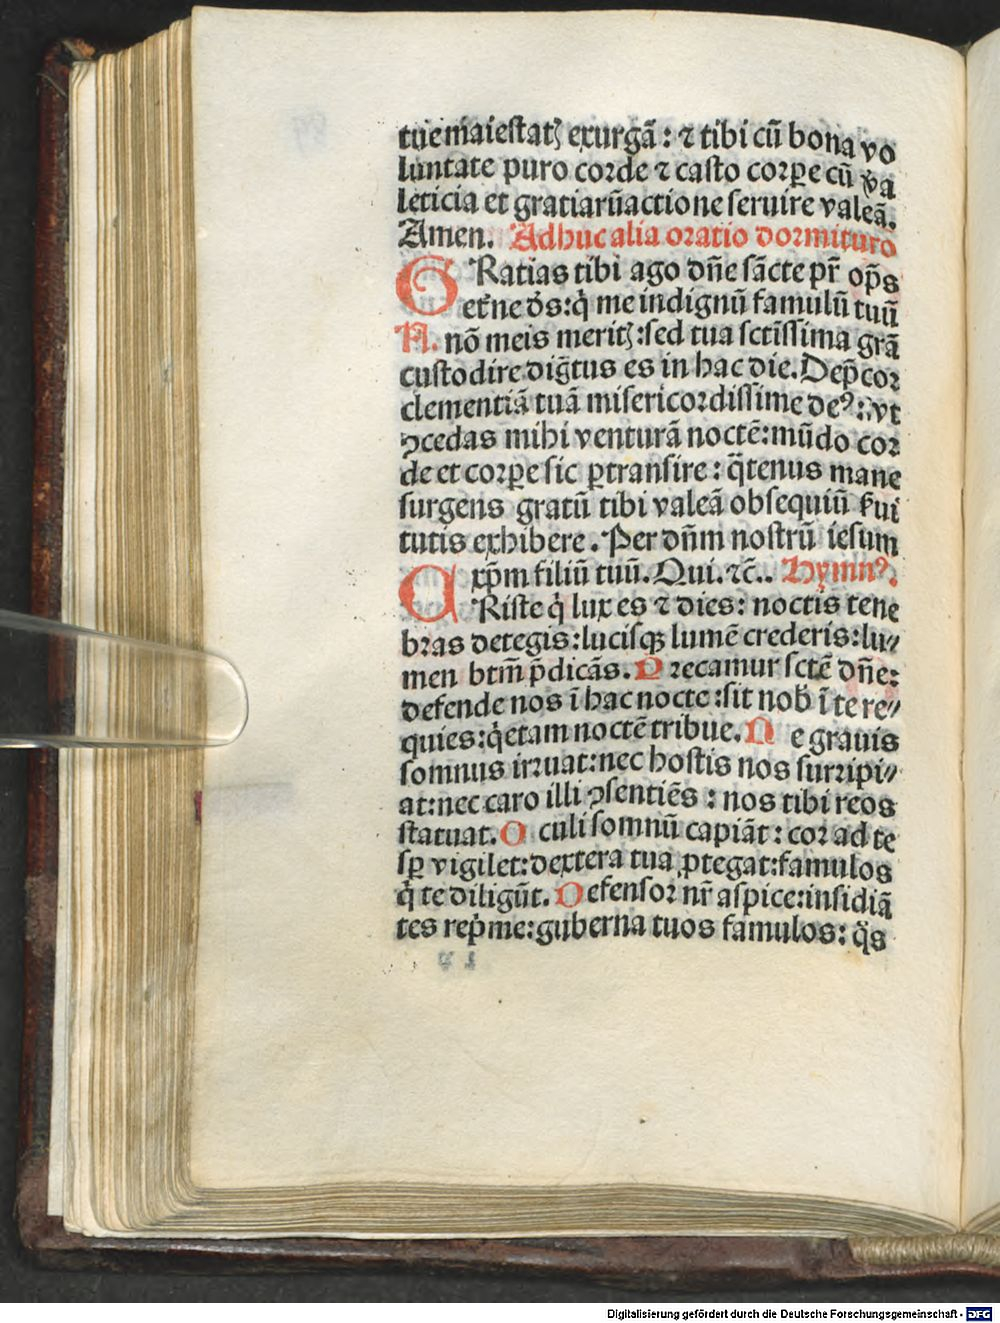 tue maiestatꝫ exurgã: ⁊ tibi cũ bona vo
luntate puro corde ⁊ casto corꝑe cũ v̾a
leticia et gratiarũactione seruire valeã.
Amen. Adhuc alia oratio dormituro
GRatias tibi ago dñe sãcte pr̃ op̃s
et̾ne de᷒s: q̇ me indignũ famulũ tuũ
N. nõ meis meritꝫ: sed tua sctĩssima grã
custodire dig̃tus es in hac die. Dep̃cor
clementiã tuã misericordissime deꝰ: vt
ꝯcedas mihi venturã noctẽ: mũdo cor
de et corꝑe sic ꝑtransire: q̃tenus mane
surgens gratũ tibi valeã obsequiũ s̾ui
tutis exhibere. Per dñm nostrũ iesum
xp̃m filiũ tuũ. Qui. ⁊c̃.. Hymnꝰ.
CRiste q̇ lux es ⁊ dies: noctis tene
bras detegis: lucisqꝫ lumẽ crederis: lu⸗
men btm̃ p̃dicãs. Precamur sctẽ dñe:
defende nos ĩ hac nocte: sit nob̾ ĩ te re⸗
quies: q̇etam noctẽ tribue. Ne grauis
somnus irruat: nec hostis nos surripi⸗
at: nec caro illi ꝯsentiẽs: nos tibi reos
statuat. Oculi somnũ capiãt: cor ad te
sꝑ vigilet: dextera tua ꝓtegat: famulos
q̇ te diligũt. Defensor nr̃ aspice: insidiã
tes rep̾me: guberna tuos famulos: q̃s
Digitalisierung gefördert durch die Deutsche Forschungsgemeinschaft - DFG